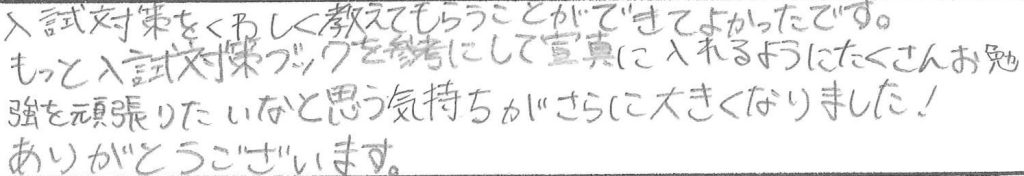 入試対策をくわしく教えてもらうことができてよかったです。
もっと入試対策ブックを参考にして宣真に入れるようにたくさんお勉
強を頑張りたいなと思う気持ちがさらに大きくなりました!
ありがとうございます。